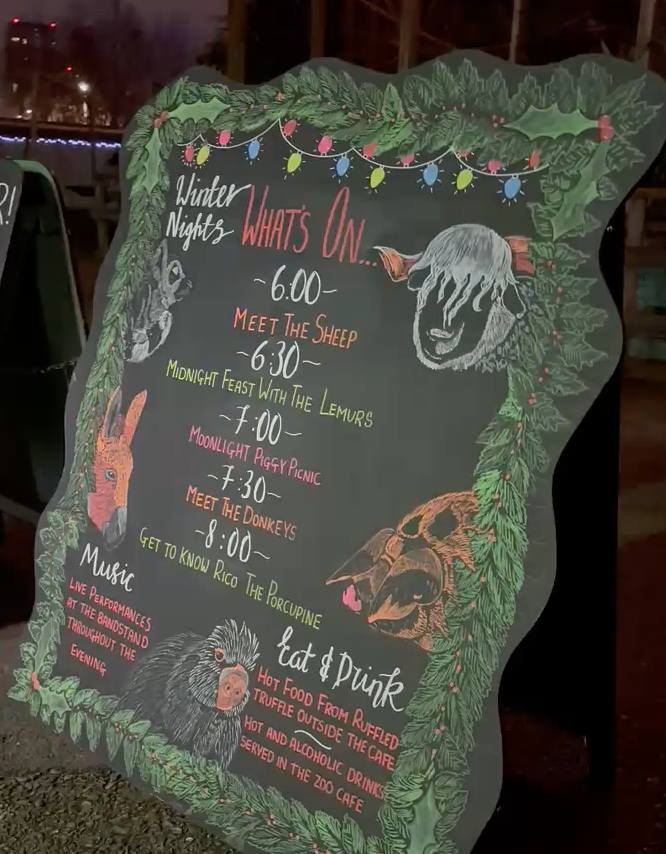 R!
Winter
Nights
WHAT'S ON...
~6:00~
MEET THE SHEEP
~6:30~
MIDNIGHT FEAST WITH THE LEMURS
~7:00~
MOONLIGHT PIGGY PICNIC
~7:30~
MEET THE DONKEYS
~8:00~
GET TO KNOW RICO THE PORCUPINE
Music
LIVE PERFORMANCES
AT THE BANDSTAND
THROUGHOUT THE
EVENING
Eat & Drink
HOT FOOD FROM RUFFLED
TRUFFLE OUTSIDE THE CAFE
~
HOT AND ALCOHOLIC DRINKS
SERVED IN THE ZOO CAFE